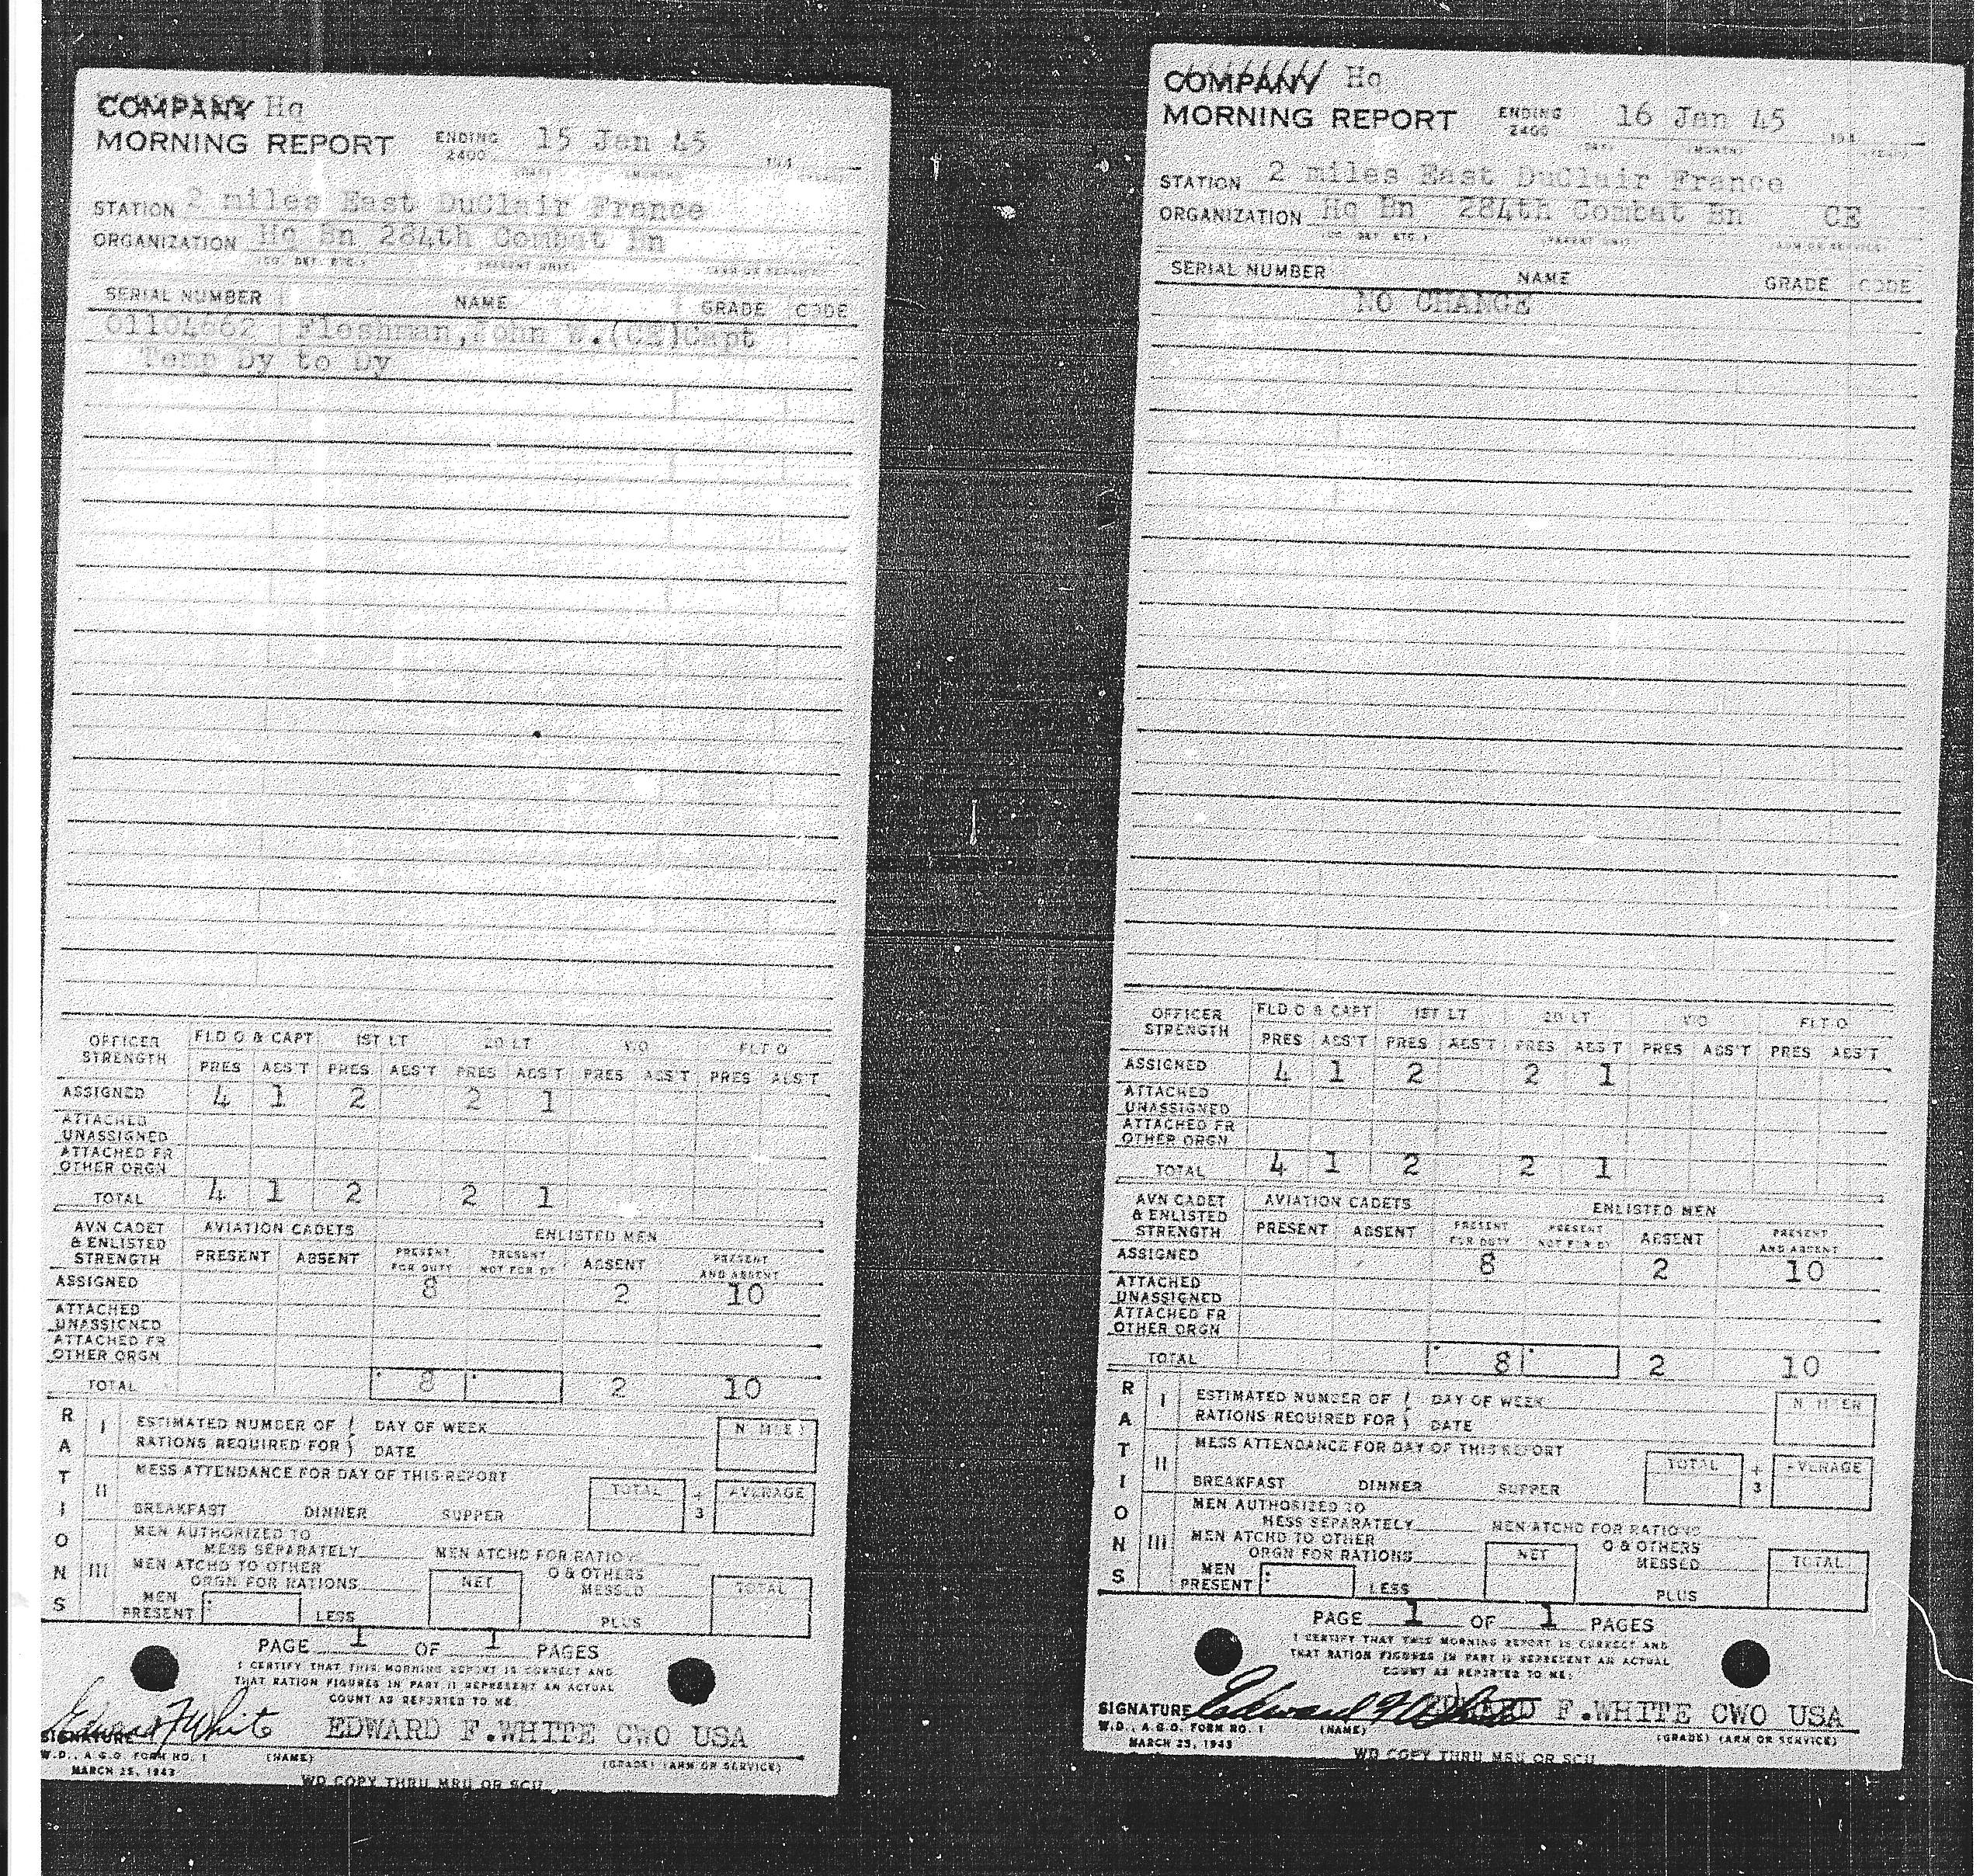 COMPANY Hq
MORNING REPORT ENDING 2400 15 Jan 45 194
(DAY) (MONTH) (YEAR)
STATION 2 miles East DuClair France
ORGANIZATION Hq Bn 284th Combat Bn
(CO. DET. ETC.) (PARENT UNIT) (ARM OR SERVICE)
SERIAL NUMBER NAME GRADE CODE
01104662 Fleshman, John W.(CE)Capt
Temp Dy to Dy
OFFICER STRENGTH FLD O & CAPT 1ST LT 2D LT W O FLT O
PRES ABS'T PRES ABS'T PRES ABS'T PRES ABS'T PRES ABS'T
ASSIGNED 4 1 2 2 1
ATTACHED UNASSIGNED
ATTACHED FR OTHER ORGN
TOTAL 4 1 2 2 1
AVN CADET & ENLISTED STRENGTH AVIATION CADETS ENLISTED MEN
PRESENT ABSENT PRESENT FOR DUTY PRESENT NOT FOR DY ABSENT PRESENT AND ABSENT
ASSIGNED 8 2 10
ATTACHED UNASSIGNED
ATTACHED FR OTHER ORGN
TOTAL 8 2 10
RATIONS
I ESTIMATED NUMBER OF RATIONS REQUIRED FOR DAY OF WEEK DATE NUMBER
II MESS ATTENDANCE FOR DAY OF THIS REPORT
BREAKFAST DINNER SUPPER TOTAL ÷ 3 AVERAGE
III MEN AUTHORIZED TO MESS SEPARATELY MEN ATCHD FOR RATIONS
MEN ATCHD TO OTHER ORGN FOR RATIONS NET O & OTHERS MESSED TOTAL
MEN PRESENT LESS PLUS
PAGE 1 OF 1 PAGES
I CERTIFY THAT THIS MORNING REPORT IS CORRECT AND
THAT RATION FIGURES IN PART II REPRESENT AN ACTUAL
COUNT AS REPORTED TO ME.
SIGNATURE Edward F White EDWARD F.WHITE CWO USA
W.D., A.G.O. FORM NO. 1 (NAME) (GRADE) (ARM OR SERVICE)
MARCH 25, 1943
WD COPY THRU MRU OR SCU
COMPANY Hq
MORNING REPORT ENDING 2400 16 Jan 45 194
(DAY) (MONTH) (YEAR)
STATION 2 miles East DuClair France
ORGANIZATION Hq Bn 284th Combat Bn CE
(CO. DET. ETC.) (PARENT UNIT) (ARM OR SERVICE)
SERIAL NUMBER NAME GRADE CODE
NO CHANGE
OFFICER STRENGTH FLD O & CAPT 1ST LT 2D LT W O FLT O
PRES ABS'T PRES ABS'T PRES ABS'T PRES ABS'T PRES ABS'T
ASSIGNED 4 1 2 2 1
ATTACHED UNASSIGNED
ATTACHED FR OTHER ORGN
TOTAL 4 1 2 2 1
AVN CADET & ENLISTED STRENGTH AVIATION CADETS ENLISTED MEN
PRESENT ABSENT PRESENT FOR DUTY PRESENT NOT FOR DY ABSENT PRESENT AND ABSENT
ASSIGNED 8 2 10
ATTACHED UNASSIGNED
ATTACHED FR OTHER ORGN
TOTAL 8 2 10
RATIONS
I ESTIMATED NUMBER OF RATIONS REQUIRED FOR DAY OF WEEK DATE NUMBER
II MESS ATTENDANCE FOR DAY OF THIS REPORT
BREAKFAST DINNER SUPPER TOTAL ÷ 3 AVERAGE
III MEN AUTHORIZED TO MESS SEPARATELY MEN ATCHD FOR RATIONS
MEN ATCHD TO OTHER ORGN FOR RATIONS NET O & OTHERS MESSED TOTAL
MEN PRESENT LESS PLUS
PAGE 1 OF 1 PAGES
I CERTIFY THAT THIS MORNING REPORT IS CORRECT AND
THAT RATION FIGURES IN PART II REPRESENT AN ACTUAL
COUNT AS REPORTED TO ME.
SIGNATURE Edward F White EDWARD F.WHITE CWO USA
W.D., A.G.O. FORM NO. 1 (NAME) (GRADE) (ARM OR SERVICE)
MARCH 25, 1943
WD COPY THRU MRU OR SCU